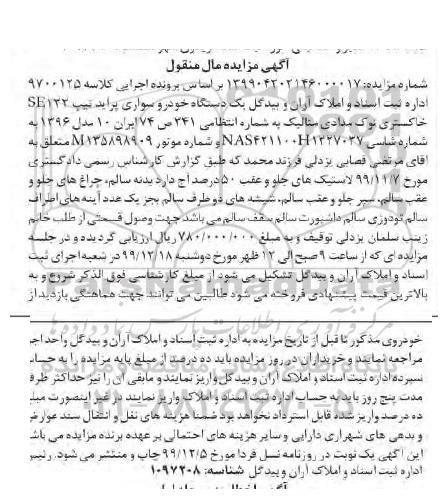 آگهی مزایده مال منقول
شماره مزایده: ۱۳۹۹۰۴۲۰۲۱۴۶۰۰۰۰۱۷ بر اساس پرونده اجرایی کلاسه ۹۷۰۰۱۲۵
اداره ثبت اسناد و املاک آران و بیدگل یک دستگاه خودرو سواری پراید تیپ SE۱۳۲
خاکستری نوک مدادی متالیک به شماره انتظامی ۲۴۱ ص ۷۴ ایران ۱۰ مدل ۱۳۹۶ به
شماره شاسی NAS۴۲۱۱۰۰H۱۲۲۷۰۲۷ و شماره موتور M۱۳۵۸۹۸۹۰۹ متعلق به
آقای مرتضی قصابی یزدلی فرزند محمد که طبق گزارش کارشناس رسمی دادگستری
مورخ ۹۹/۱۱/۷ لاستیک های جلو و عقب ۵۰ درصد آج دارد بدنه سالم، چراغ های جلو و
عقب سالم، سپر جلو و عقب سالم، شیشه های دو طرف سالم بجز یک عدد آینه های اطراف
سالم تودوزی سالم داشبورت سالم سقف سالم می باشد جهت وصول قسمتی از طلب خانم
زینب سلمان یزدلی توقیف و به مبلغ ۷۸۰/۰۰۰/۰۰۰ ریال ارزیابی گردیده و در جلسه
مزایده ای که از ساعت ۹ صبح الی ۱۲ ظهر مورخ دوشنبه ۹۹/۱۲/۱۸ در شعبه اجرای ثبت
اسناد و املاک آران و بیدگل تشکیل می شود از مبلغ کارشناسی فوق الذکر شروع و به
بالاترین قیمت پیشنهادی فروخته می شود طالبین می توانند جهت هماهنگی بازدید از
خودروی مذکور تا قبل از تاریخ مزایده به اداره ثبت اسناد و املاک آران و بیدگل واحد اجرا
مراجعه نمایند و خریداران در روز مزایده باید ده درصد از مبلغ پایه مزایده را به حساب
سپرده اداره ثبت اسناد و املاک آران و بیدگل واریز نمایند و مابقی آن را نیز حداکثر ظرف
مدت پنج روز باید به حساب اداره ثبت اسناد و املاک واریز نمایند در غیر اینصورت مبلغ
ده درصد واریز شده قابل استرداد نخواهد بود ضمنا هزینه های نقل و انتقال سند عوارض
و بدهی های شهرداری دارایی و سایر هزینه های احتمالی بر عهده برنده مزایده می باشد
این آگهی یک نوبت در روزنامه نسل فردا مورخ ۹۹/۱۲/۵ چاپ و منتشر می شود. رئیس
اداره ثبت اسناد و املاک آران و بیدگل شناسه: ۱۰۹۷۲۰۸